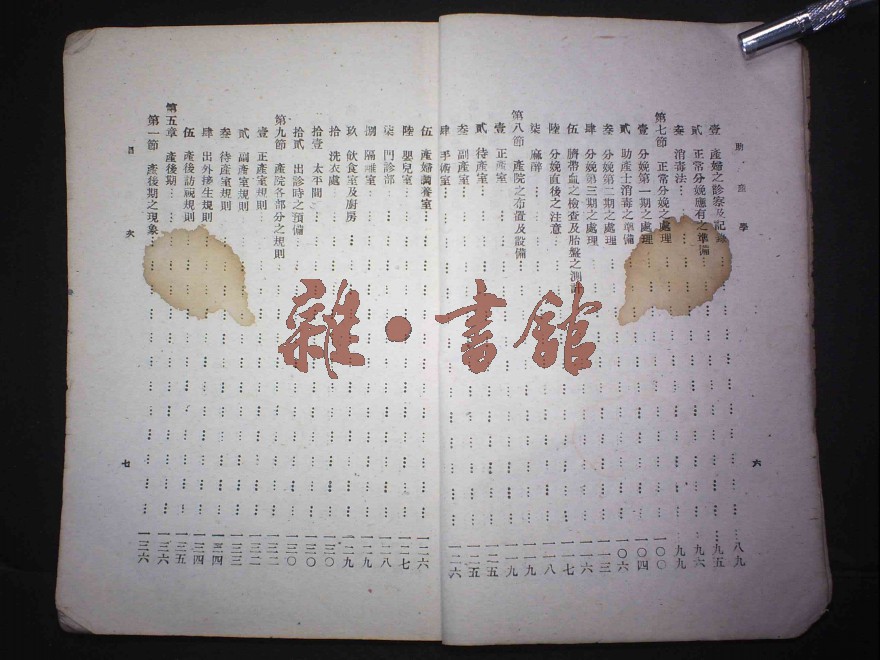 助產學
壹 產婦之診察及記錄……八九
貳 正常分娩應有之準備……九五
叁 消毒法……九六
第七節 正常分娩之處理……九九
壹 分娩第一期之處理……一〇〇
貳 助產士消毒之準備……一〇四
叁 分娩第二期之處理……一〇六
肆 分娩第三期之處理……一一三
伍 臍帶血之檢查及胎盤之測計……一一六
陸 分娩直後之注意……一一七
柒 麻醉……一一八
第八節 產院之布置及設備……一一九
壹 正產室……一一九
貳 待產室……一二五
叁 副產室……一二五
肆 手術室……一二六
六
伍 產婦調養室……一二六
陸 嬰兒室……一二七
柒 門診部……一二八
捌 隔離室……一二九
玖 飲食室及廚房……一二九
拾 洗衣處……一三〇
拾壹 太平間……一三〇
拾貳 出診時之預備……一三〇
第九節 產院各部分之規則……一三二
壹 正產室規則……一三二
貳 副產室規則……一三三
叁 待產室規則……一三四
肆 出外接生規則……一三四
伍 產後訪視規則……一三五
第五章 產後期……一三六
第一節 產後期之現象……一三六
目次
七
雜·書館